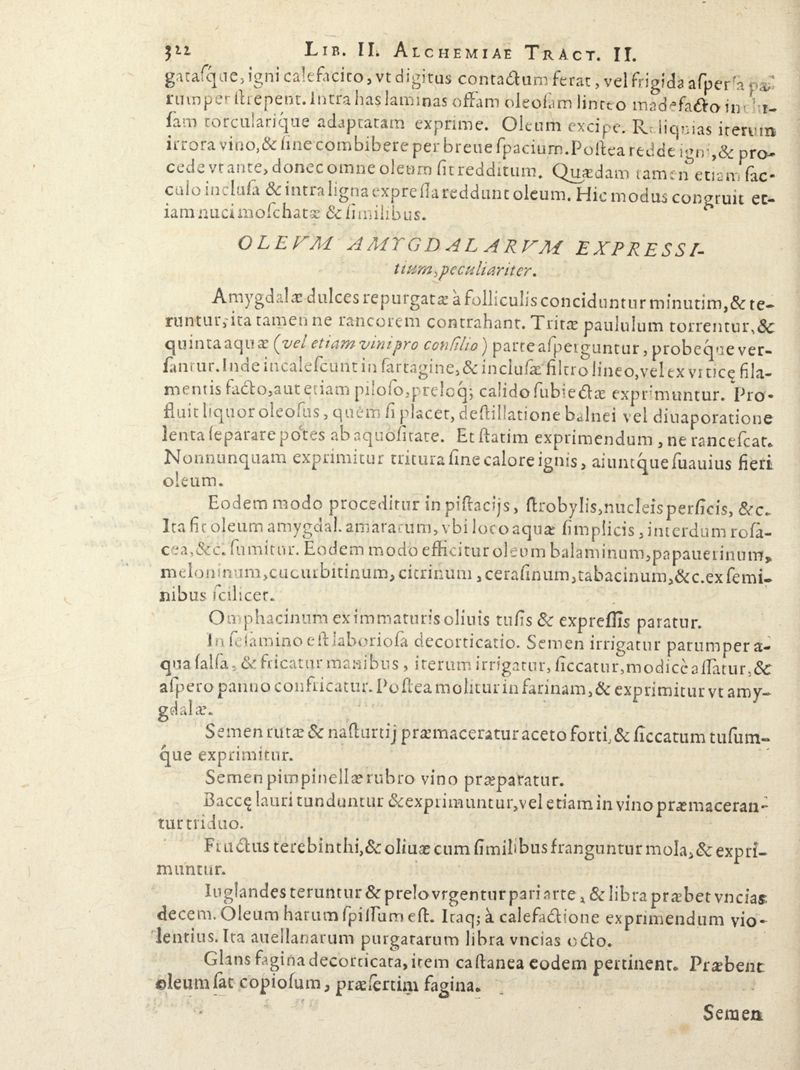 322 LIB. II. ALCHEMIAE TRACT. II.
gataſque, igni calefacito, vt digitus contactum ferat, vel frigida aſperſa
rum per ſtrepent. Intra has laminas offam oleoſam linteo madefacto
ſam torcularique adaptatam exprime. Oleum excipe. Reliquias iterum
irrora vino, & ſine combibere per breue ſpacium. Poſtea redde igni, & pro-
cede vt ante, donec omne oleum ſit redditum. Quædam tamen etiam ſac-
culo incluſa & intra ligna expreſſa reddunt oleum. Hic modus congruit et-
iam nuci moſchatæ & ſimilibus.
OLEVM AMYGDALARVM EXPRESSI-
tium, peculiariter.
Amygdalæ dulces repurgatæ à folliculis conciduntur minutim, & te-
runtur, ita tamen ne rancorem contrahant. Tritæ paululum torrentur, &
quinta aquæ (vel etiam vini pro conſilio) parte aſperguntur, probeque ver-
ſantur. Inde incaleſcunt in ſartagine, & incluſæ filtro lineo, vel ex vrtice fila-
mentis facto, aut etiam piloſo, preloq; calido ſubiectæ exprimuntur. Pro-
fluit liquor oleoſus, quem ſi placet, deſtillatione balnei vel diuaporatione
lenta ſeparare potes ab aquoſitate. Et ſtatim exprimendum, ne ranceſcat.
Nonnunquam exprimitur tritura ſine calore ignis, aiuntque ſuauius fieri
oleum.
Eodem modo proceditur in piſtacijs, ſtrobylis, nucleis perſicis, &c.
Ita fit oleum amygdal. amararum, vbi loco aquæ ſimplicis, interdum roſa-
cea, &c. ſumitur. Eodem modo efficitur oleum balaminum, papauerinum,
meloninum, cucurbitinum, citrinum, ceraſinum, tabacinum, &c. ex ſemi-
nibus ſcilicet.
Omphacinum ex immaturis oliuis tuſis & expreſſis paratur.
In ſeſamino eſt laborioſa decorticatio. Semen irrigatur parumper a-
qua ſalſa, & fricatur manibus, iterum irrigatur, ſiccatur, modicè aſſatur, &
aſpero panno confricatur. Poſtea molitur in farinam, & exprimitur vt amy-
gdalæ.
Semen rutæ & naſturtij præmaceratur aceto forti, & ſiccatum tuſum-
que exprimitur.
Semen pimpinellæ rubro vino præparatur.
Baccę lauri tunduntur & exprimuntur, vel etiam in vino præmaceran-
tur triduo.
Fructus terebinthi, & oliuæ cum ſimilibus franguntur mola, & expri-
muntur.
Iuglandes teruntur & prelo vrgentur pari arte, & libra præbet vncias
decem. Oleum harum ſpiſſum eſt. Itaq; à calefactione exprimendum vio-
lentius. Ita auellanarum purgatarum libra vncias octo.
Glans fagina decorticata, item caſtanea eodem pertinent. Præbent
oleum ſat copioſum, præſertim fagina.
Semen